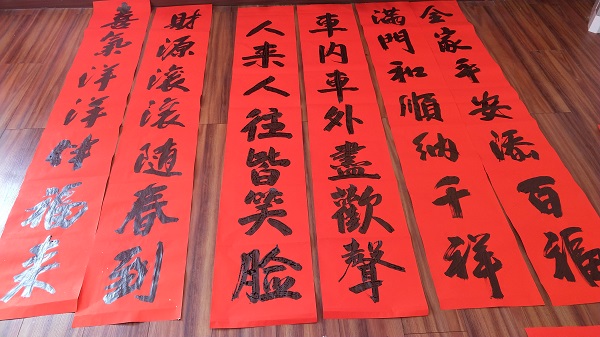 全家平安添百福
滿門和順納千祥
車内車外盡歡聲
人来人往皆笑脸
財源滚滚随春到
喜氣洋洋伴福来